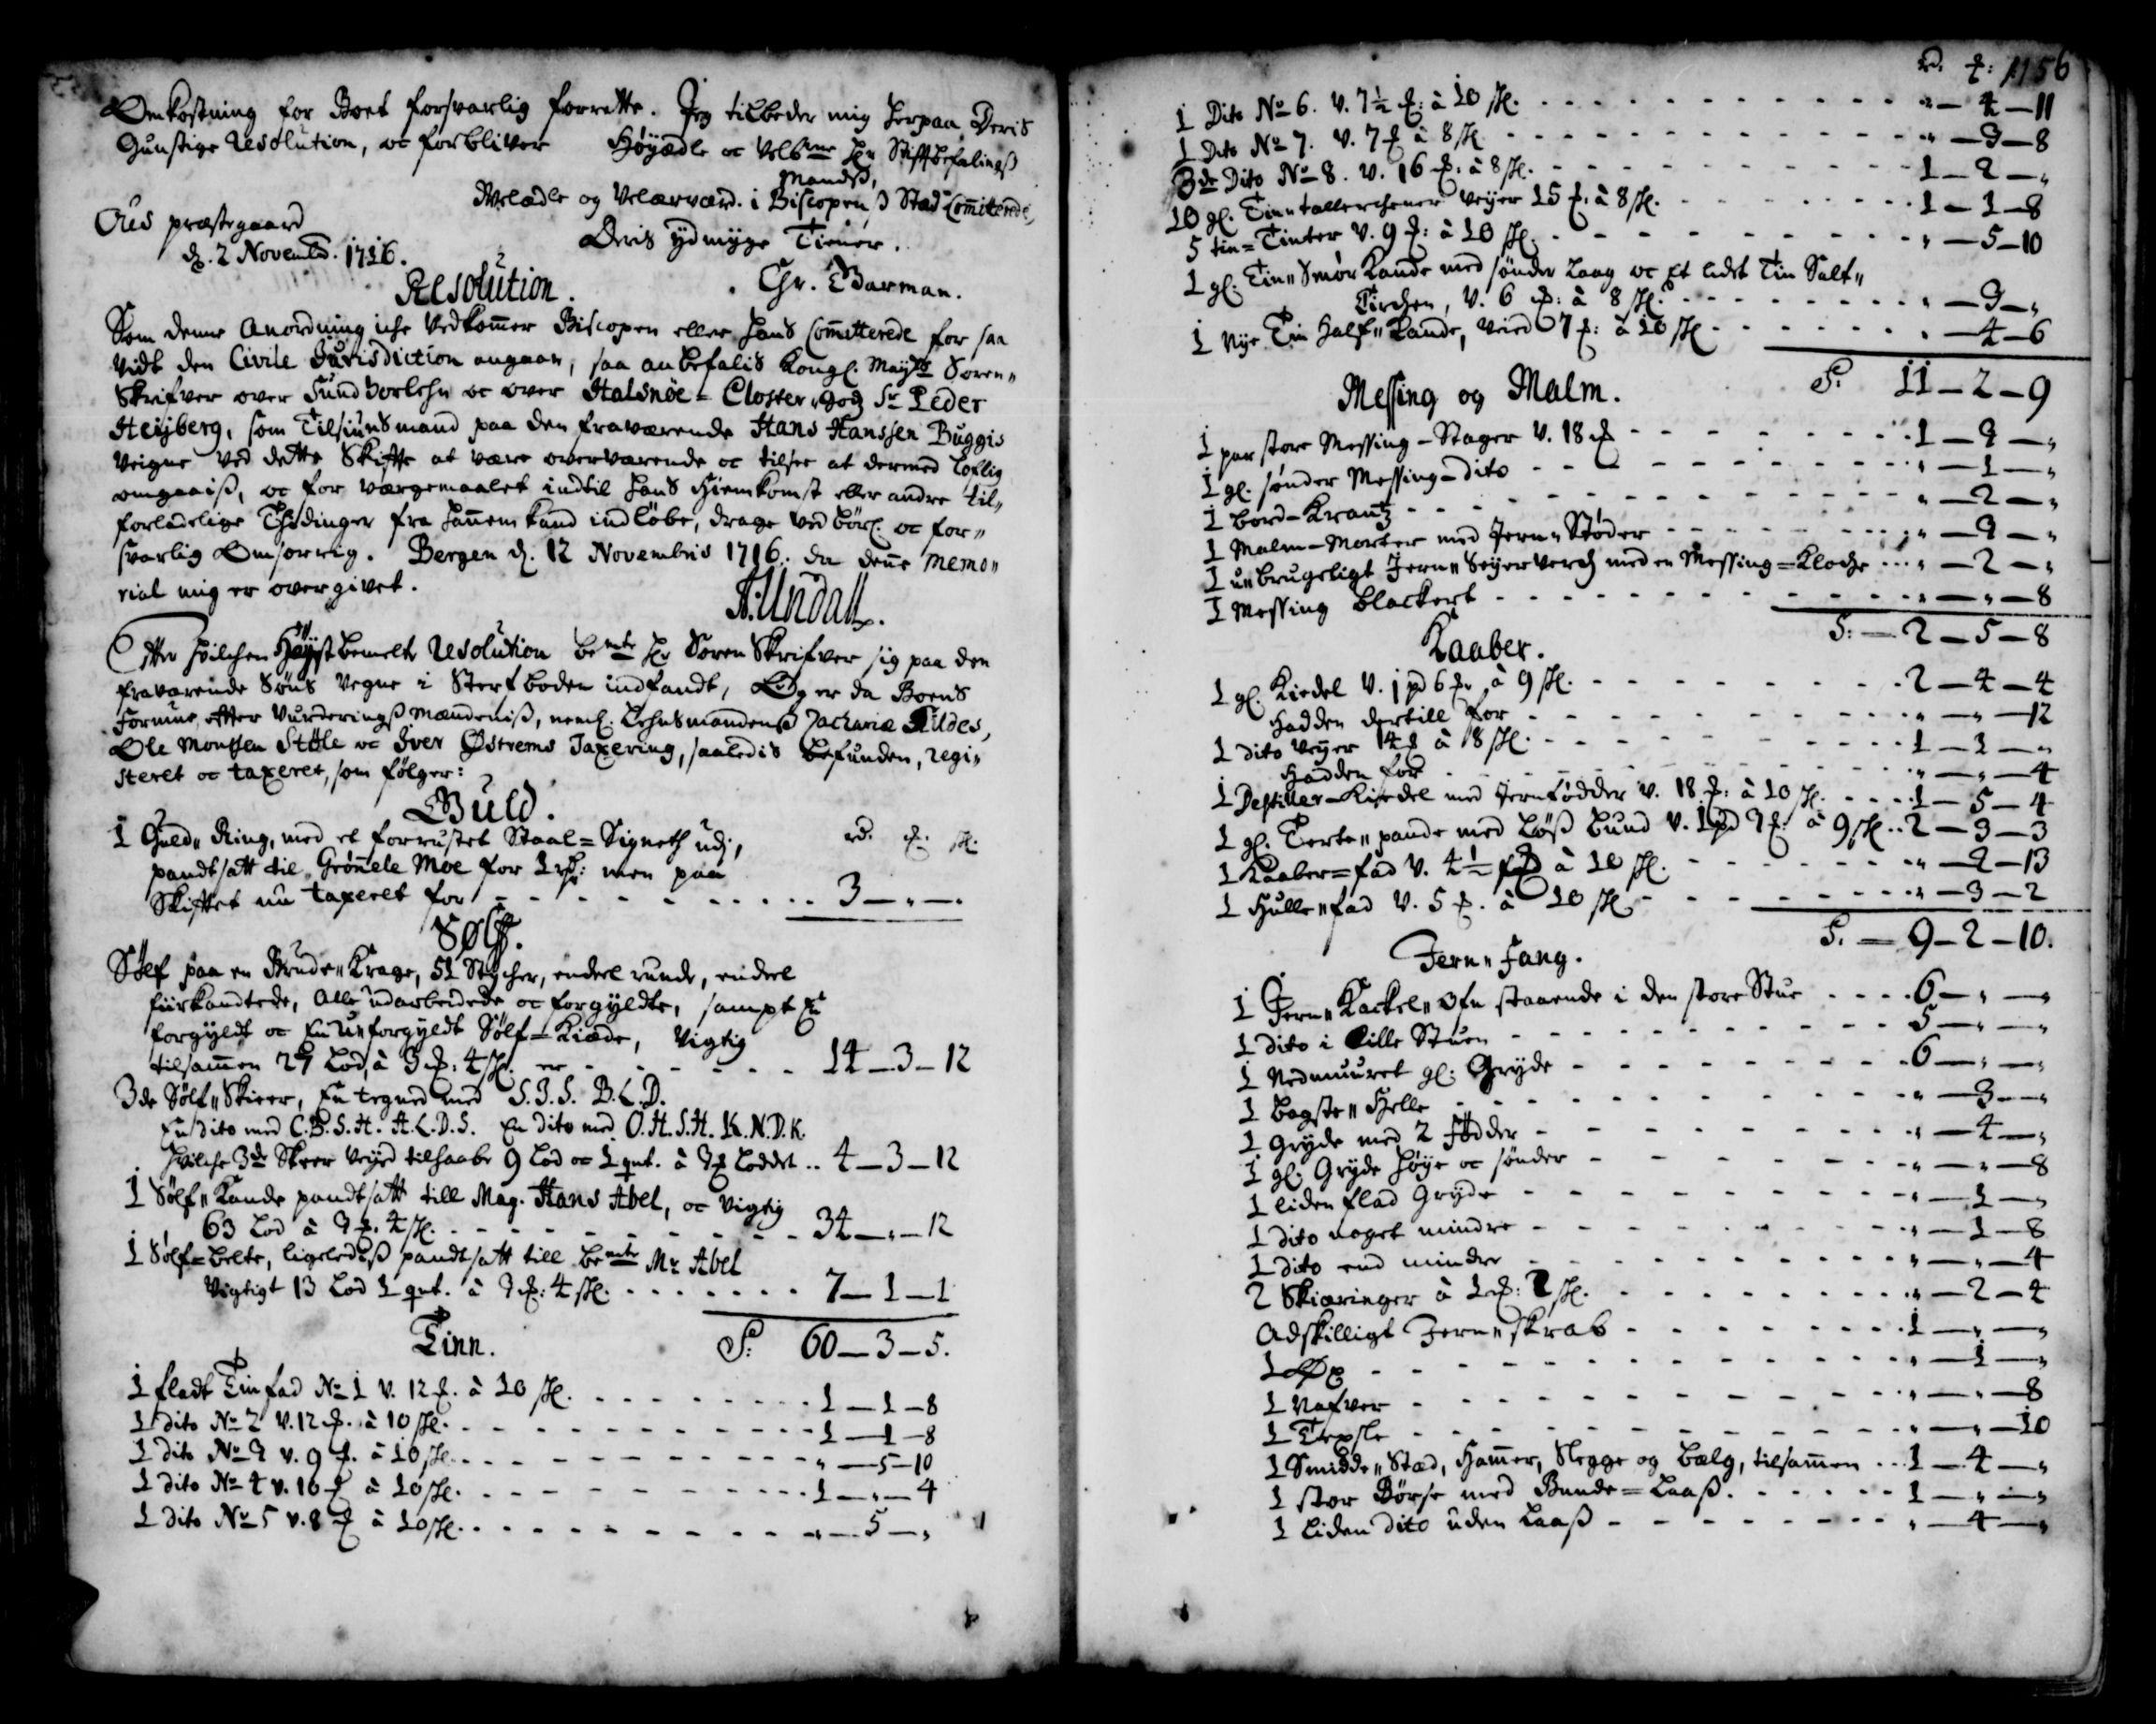 Omkostning for Boet forsvarlig forrette. Jeg tilbeder mig herpaa Deris
Gunstige Resolution, oc forbliver Høyædle oc Velbne Hr Stiftbefalings
Mands,
Velædle og Velærværd. i Biscopens Stad Committerede
Øens præstegaard
d. 2 Novemb. 1716.
Deris ydmyge Tiener.
Resolution.
Chr. Barman.
Som denne Anordning iche vedkommer Biscopen eller hans Committerede for saa
vidt den Civile Jurisdiction angaar, saa anbefalis Kongl. Mayts Soren„
Skrifver over Sundhorlehn oc over Halsnøe-Closter„gods Sr Peder
Heijberg, som Tilsiuns mand paa den fraværende Hans Hanssen Buggis
veigne ved dette Skiffte at være overværende oc tilsee at dermed lovlig
omgaais, oc for værgemaalet indtil hans hiemkomst eller andre til„
forladelige Tidinger fra hannem kand indløbe, drage ved børl. oc for„
svarlig Omsorrig. Bergen d. 12 Novembris 1716. da denne Memo„
rial mig er overgivet.
A: Undall.
Effter hvilchen Høystbemelte Resolution bemte Hr Soren Skrifver sig paa den
fraværende Søns vegne i Sterfboden indfandt, Og er da Boens
Formue effter Vurderings Mændenis, neml. Lehnsmandens Zachariæ Tildes,
Ole Monssen Støle oc Iver Østrems Taxering, saaledis befunden, regi„
steret oc taxeret, som følger:
Guld.
rd. ꝑ. sk.
1 Guld„Ring, med et forrustet Staal=Signeth udj,
pandtsatt til Grønnele Moe for 1 rdr: men paa
Skifftet nu taxeret for - - - 3 — „ — „
Sølf.
Sølf paa en Brude„Krage, 51 Stycher, endeel runde, endeel
fiirkandtede, Alle udarbeidede oc forgyldte, sampt En
forgyldt oc En u„forgyldt Sølf-Kiæde, Vigtig
tilsammen 27 Lod, à 3 ꝑ: 4 sk. er - - - 14 — 3 — 12
3de Sølf„Skieer, En tegned med S.I.S. B.L.D.
En dito med C.B.S.H. A.L.D.S. En dito med O.H.S.H. K.N.D.K.
hvilche 3de Skeer veyed tilhaabe 9 Lod oc 1 qnt. à 3 ꝑ Loddet .. 4 — 3 — 12
1 Sølf„Kande pandtsatt till Mag. Hans Abel, oc vigtig
63 Lod à 3 ꝑ. 4 sk. - - - 34 — „ — 12
1 Sølf=Belte, ligeledis pandtsatt till bemte Mr Abel
Vigtigt 13 Lod 1 qnt. à 3 ꝑ: 4 sk. . . . 7 — 1 — 1
Tinn. S. 60 — 3 — 5.
1 fladt Tinfad No 1 v. 12 ꝑ. à 10 sk. . . . 1 — 1 — 8
1 dito No 2 v. 12 ꝑ. à 10 sk. - - - 1 — 1 — 8
1 dito No 3 v. 9 ꝑ. à 10 sk. - - - „ — 5 — 10
1 dito No 4 v. 10 ꝑ à 10 sk. - - - 1 — „ — 4
1 dito No 5 v. 8 ꝑ à 10 sk. . . . „ — 5 — „
rd. ꝑ: 1156
1 Dito No 6. v. 7½ ꝑ: à 10 sk. - - - „ — 4 — 11
1 Dito No 7. v. 7 ꝑ à 8 sk - - - „ — 3 — 8
3de Dito No 8. v. 16 ꝑ. à 8 sk. - - - 1 — 2 — „
10 gl. Tinntallerchener veyer 15 ꝑ. à 8 sk. - - - 1 — 1 — 8
5 tin=Tinter v. 9 ꝑ: à 10 sk. - - - „ — 5 — 10
1 gl. Tin„Smør Kande med sønder Laag oc Et lidet Tin Salt„
Kirchen, v. 6 ꝑ: à 8 sk. - - - „ — 3 — „
1 Nye Tin Half„Kande, veied 7 ꝑ: à 10 sk - - - „ — 4 — 6
Messing og Malm. S. 11 — 2 — 9
1 par store Messing-Stager v. 18 ꝑ - - - 1 — 3 — „
1 gl. sønder Messing-dito - - - „ — 1 — „
1 Bord-Krantz - - - „ — 2 — „
1 Malm-Morter med Jern„Støder - - - „ — 3 — „
1 u„brugeligt Jern„Seyerverch med en Messing=Kloche ... „ — 2 — „
1 Messing blackert - - - „ — „ — 8
Kaaber. S: — 2 — 5 — 8
1 gl. Kiedel v. 1 pd 6 ꝑ à 9 sk. - - - 2 — 4 — 4
Hadden dertill for - - - „ — „ — 12
1 dito veyer 14 ꝑ à 8 sk. - - - 1 — 1 — „
Hadden for - - - „ — „ — 4
1 Destiller-Kiedel med Jernfødder v. 18 ꝑ: à 10 sk. - - - 1 — 5 — 4
1 gl. Terte„pande med Løß Bund v. 1 pd 3 ꝑ: à 9 sk .. 2 — 3 — 3
1 Kaaber=fad v. 4½ ꝑ à 10 sk. - - - „ — 2 — 13
1 Hulle„fad v. 5 ꝑ. à 10 sk - - - „ — 3 — 2
Jern„fang. S. — 9 — 2 — 10.
1 Jern„Kackel„Ofn staaende i den store Stue . . . . 6 — „ — „
1 dito i Lille Stuen - - - 5 — „ — „
1 Nedmuuret gl. Gryde - - - 6 — „ — „
1 Bagste„Helle - - - „ — 3 — „
1 Gryde med 2 Fødder - - - „ — 4 — „
1 gl. Gryde høye oc sønder - - - „ — „ — 8
1 liden flad Gryde - - - „ — 1 — „
1 dito noget mindre - - - „ — 1 — 8
1 dito end mindre - - - „ — „ — 4
2 Skiæringer à 1 ꝑ: 2 sk. - - - „ — 2 — 4
Adskilligt Jern„skrab - - - 1 — „ — „
1 Øx - - - „ — 1 — „
1 Nafver - - - „ — „ — 8
1 Texsle - - - „ — „ — 10
1 Smidde„Stæd, Hammer, Slegge og Bælg, tilsammen .. 1 — 4 — „
1 stor Børse med Bunde=Laaß. - - - 1 — „ — „
1 liden dito uden Laaß - - - „ — 4 — „